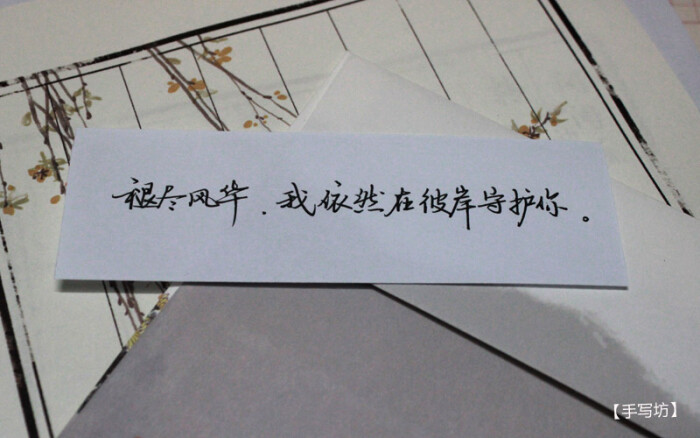 褪尽风华.我依然在彼岸守护你。
【手写坊】